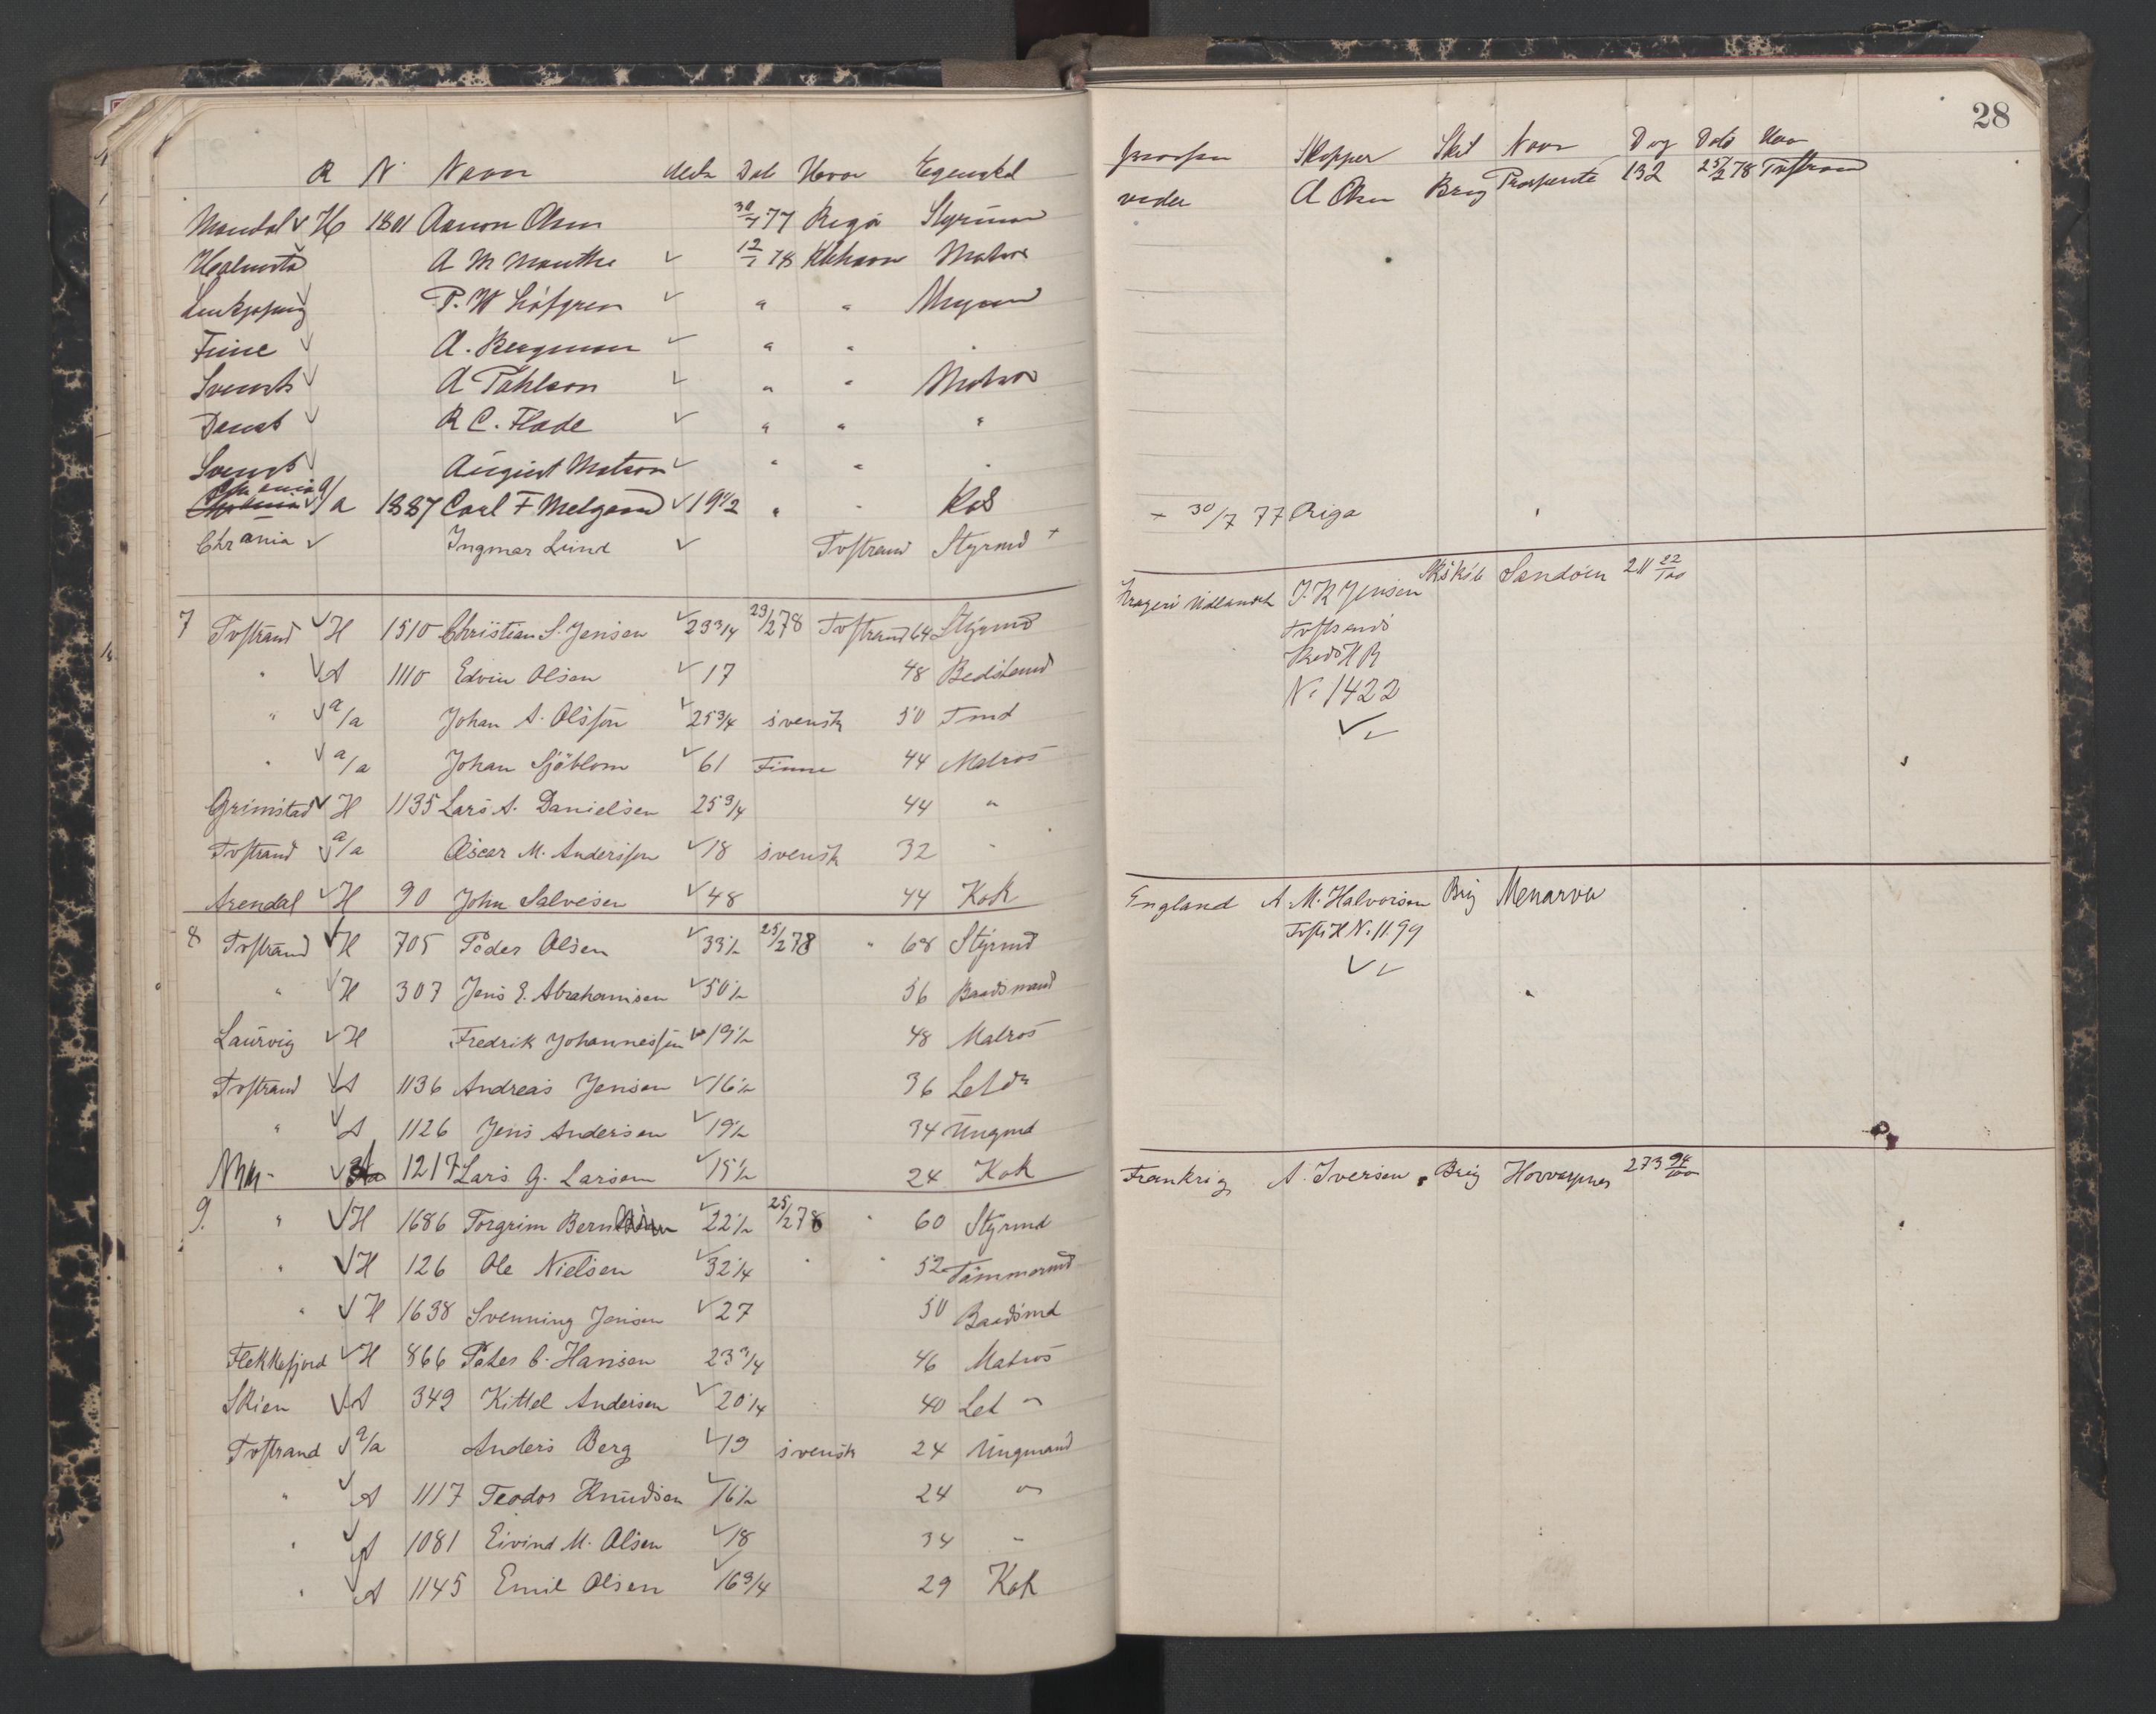 R N Navn Dat Hvor Egenskab
Mandal H 1801 Aanon Olsen 30/7 77 Riga Styrmand
Halmsta A M Manthe 12/1 78 Kbhavn Matros
Linkjøping P. W Løfgren " " Ungmand
Finne A. Bergman " " "
Svensk A Pahlson " " Matros
Dansk R C. Flade " " "
Svensk August Matson " " "
a/a 1887 Carl F. Melgaard 19 1/2 " " Kok
Chrania Ingmar Lund Tvstrand Styrmd +
7 Tvstrand H 1510 Christian S. Jensen 23 3/4 23/2 78 Tvstrand 64 Styrmd
" A 1110 Edvin Olsen 17 48 Bedstemd
" a/a Johan A. Olsson 25 3/4 svensk 50 Tmd
" a/a Johan Sjöblom 61 Finne 44 Matros
Grimstad H 1135 Lars A. Danielsen 25 3/4 44 "
Tvstrand a/a Oscar M. Andersson 18 svensk 32 "
Arendal H 90 John Salvesen 48 44 Kok
8 Tvstrand H 705 Peder Olsen 33 1/2 25/2 78 " 68 Styrmd
" H 307 Jens E. Abrahamsen 50 1/2 56 Baadsmand
Laurvig H Fredrik Johannessen 19 1/2 48 Matros
Tvstrand A 1136 Andreas Jensen 16 1/2 36 Let do
" A 1126 Jens Andersen 19 1/2 34 Ungmd
1217 Lars G. Larsen 15 1/2 24 Kok
9. " H 1686 Torgrim 22 1/2 25/2 78 " 60 Styrmd
" H 126 Ole Nielsen 32 1/4 " " 52 Tømmermd
" H 1638 Svenning Jensen 27 50 Baadsmd
Flekkefjord H 866 Peder C. Hansen 23 3/4 46 Matros
Skien A 349 Kittel Andersen 20 1/4 40 Let "
Tvstrand a/a Anders Berg 19 svensk 24 Ungmand
" A 1117 Teodor Knudsen 16 1/2 24 "
" A 1081 Eivind M. Olsen 18 34 "
" A 1145 Emil Olsen 16 3/4 29 Kok
28
Skipper Skib Navn Drg Dato Hvor
A Olsen Brig Prosperite 132 25/2 78 Tvstrand
+ 30/7 77 Riga
Kragerø Udlandet J. R Jensen Skskib Sandøen 211 22/100
Tvstrand
H R
No 1422
England A. M. Halvorsen Brig Menarva
Tvst H No 1199
Frankrig A. Iversen Brig 273 94/100